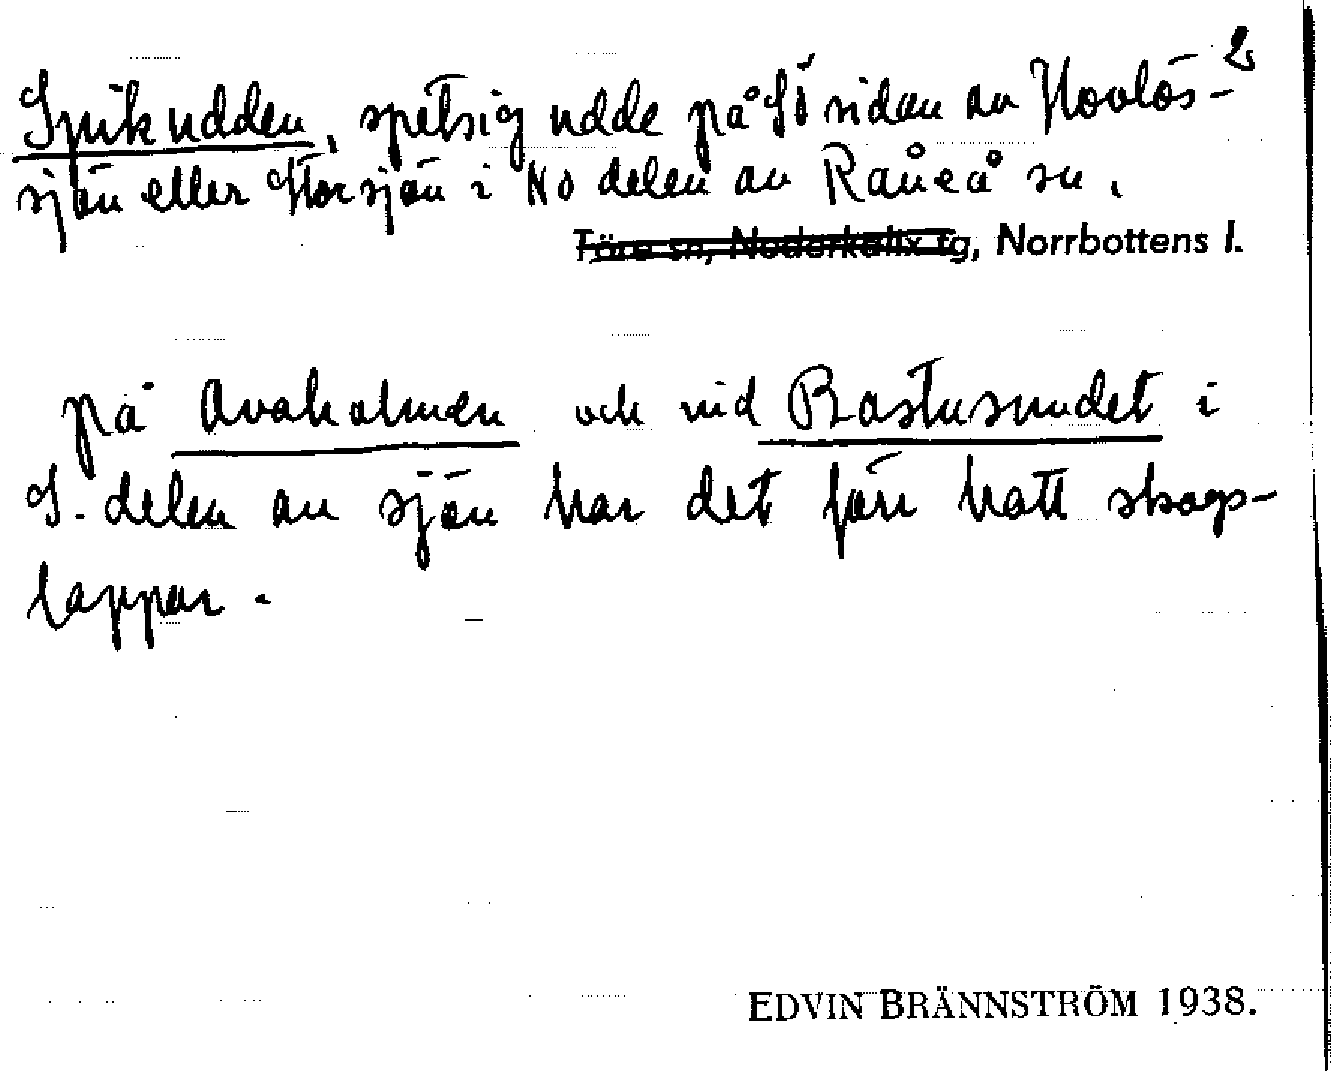 2
Spikudden, spetsig udde på Sö sidan av Hovlös-
sjön eller Storsjön i No delen av Råneå sn.
Töre sn, Nederkalix tg, Norrbottens l.
på Avaholmen och vid Bastusundet i
S. delen av sjön har det förr hatt skogs-
lappar.
EDVIN BRÄNNSTRÖM 1938.